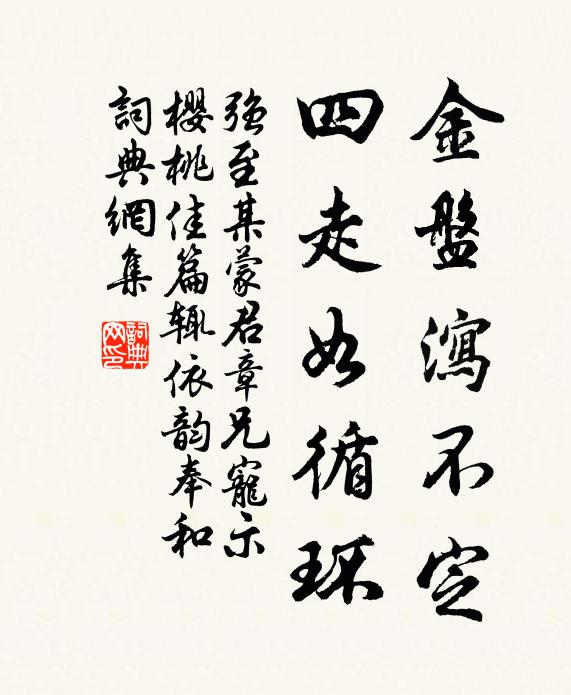 金盤瀉不定
四走如循环
強至某蒙君章兄寵示
櫻桃佳篇辄依韵奉和
詞典網集
詞典网印